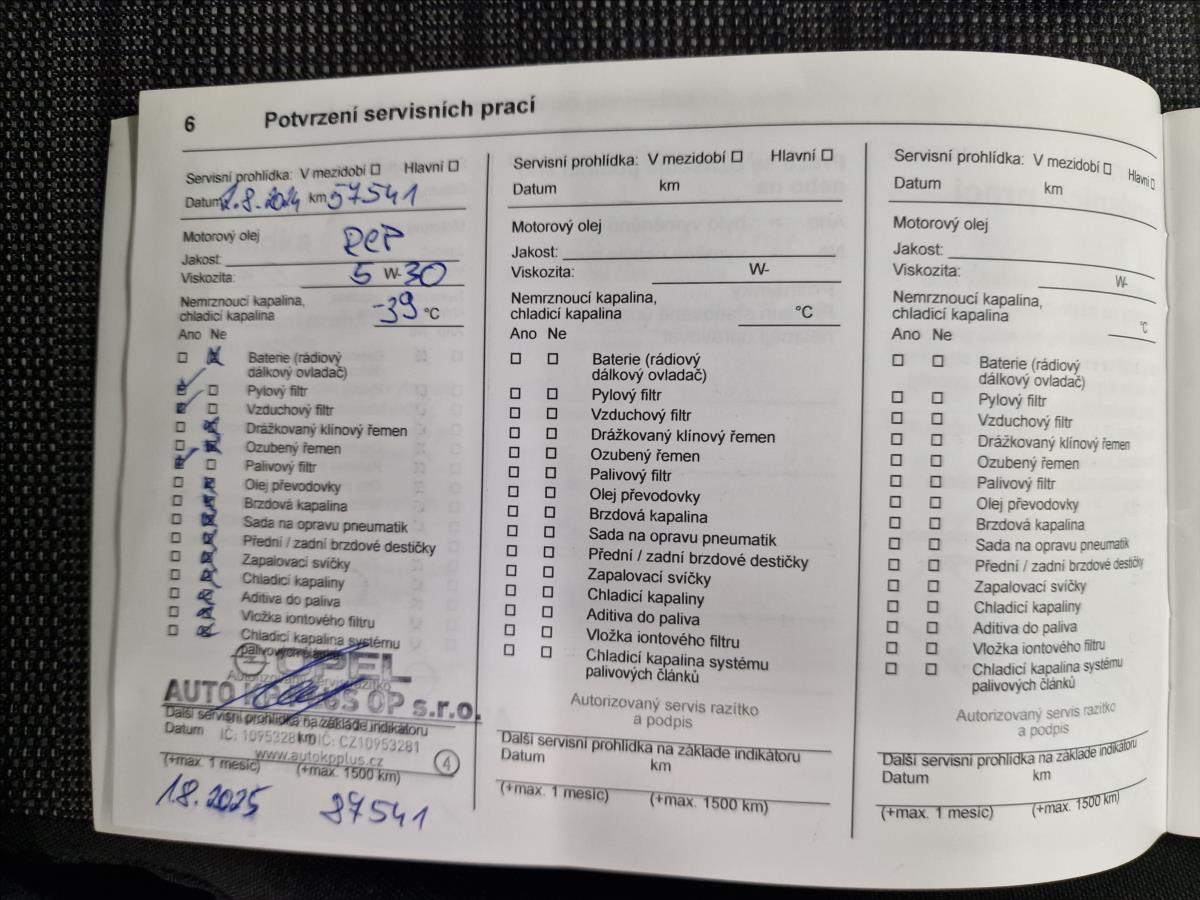 6 Potvrzení servisních prací
Servisní prohlídka: V mezidobí Hlavní
Datum 1.8.2024 km 57541
Motorový olej
Jakost:
Viskozita: 5 W- 30
Nemrznoucí kapalina,
chladicí kapalina -39 °C
Ano Ne
Baterie (rádiový
dálkový ovladač)
Pylový filtr
Vzduchový filtr
Drážkovaný klínový řemen
Ozubený řemen
Palivový filtr
Olej převodovky
Brzdová kapalina
Sada na opravu pneumatik
Přední / zadní brzdové destičky
Zapalovací svíčky
Chladicí kapaliny
Aditiva do paliva
Vložka iontového filtru
Chladicí kapalina systému
palivových článků
OPEL
Autorizovaný servis razítko
AUTO OP s.r.o.
Další servisní prohlídka na základě indikátoru
Datum km
IČ: 10953281 DIČ: CZ10953281
www.autokpplus.cz 4
(+max. 1 měsíc) (+max. 1500 km)
1.8.2025 87541
Servisní prohlídka: V mezidobí Hlavní
Datum km
Motorový olej
Jakost:
Viskozita: W-
Nemrznoucí kapalina,
chladicí kapalina °C
Ano Ne
Baterie (rádiový
dálkový ovladač)
Pylový filtr
Vzduchový filtr
Drážkovaný klínový řemen
Ozubený řemen
Palivový filtr
Olej převodovky
Brzdová kapalina
Sada na opravu pneumatik
Přední / zadní brzdové destičky
Zapalovací svíčky
Chladicí kapaliny
Aditiva do paliva
Vložka iontového filtru
Chladicí kapalina systému
palivových článků
Autorizovaný servis razítko
a podpis
Další servisní prohlídka na základě indikátoru
Datum km
(+max. 1 měsíc) (+max. 1500 km)
Servisní prohlídka: V mezidobí Hlavní
Datum km
Motorový olej
Jakost:
Viskozita: W-
Nemrznoucí kapalina,
chladicí kapalina °C
Ano Ne
Baterie (rádiový
dálkový ovladač)
Pylový filtr
Vzduchový filtr
Drážkovaný klínový řemen
Ozubený řemen
Palivový filtr
Olej převodovky
Brzdová kapalina
Sada na opravu pneumatik
Přední / zadní brzdové destičky
Zapalovací svíčky
Chladicí kapaliny
Aditiva do paliva
Vložka iontového filtru
Chladicí kapalina systému
palivových článků
Autorizovaný servis razítko
a podpis
Další servisní prohlídka na základě indikátoru
Datum km
(+max. 1 měsíc) (+max. 1500 km)